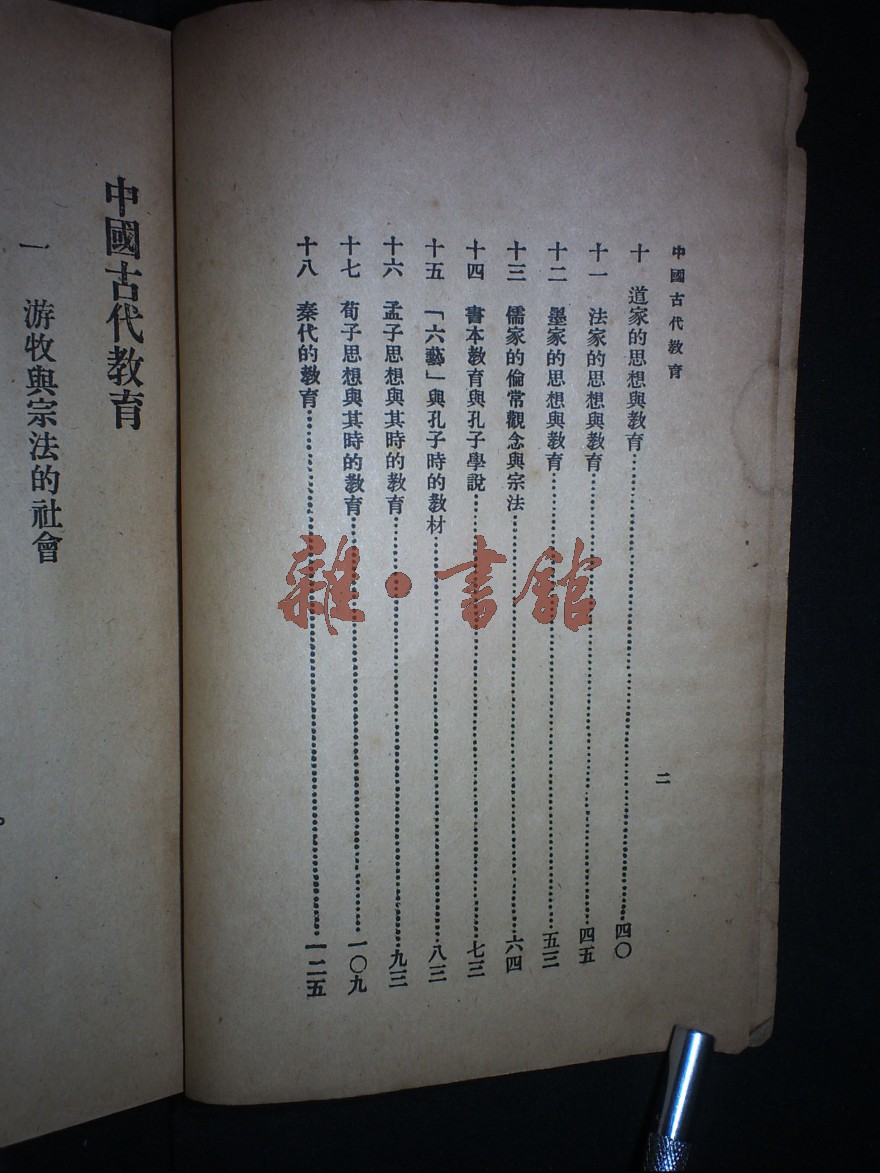 中國古代教育
二
十 道家的思想與教育……四〇
十一 法家的思想與教育……四五
十二 墨家的思想與教育……五三
十三 儒家的倫常觀念與宗法……六四
十四 書本教育與孔子學說……七三
十五 「六藝」與孔子時的教材……八三
十六 孟子思想與其時的教育……九三
十七 荀子思想與其時的教育……一〇九
十八 秦代的教育……一二五
中國古代教育
一 游牧與宗法的社會
雜·書館